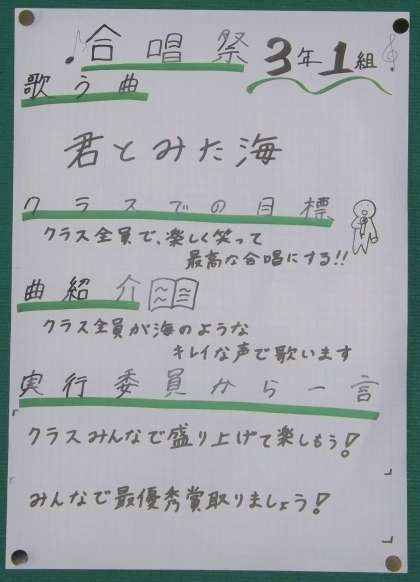 合唱祭 3年1組
歌う曲
君とみた海
クラスでの目標
クラス全員で、楽しく笑って
最高な合唱にする!!
曲紹介
クラス全員が海のような
キレイな声で歌います
実行委員から一言
「クラスみんなで盛り上げて楽しもう!」
「みんなで最優秀賞取りましょう!」